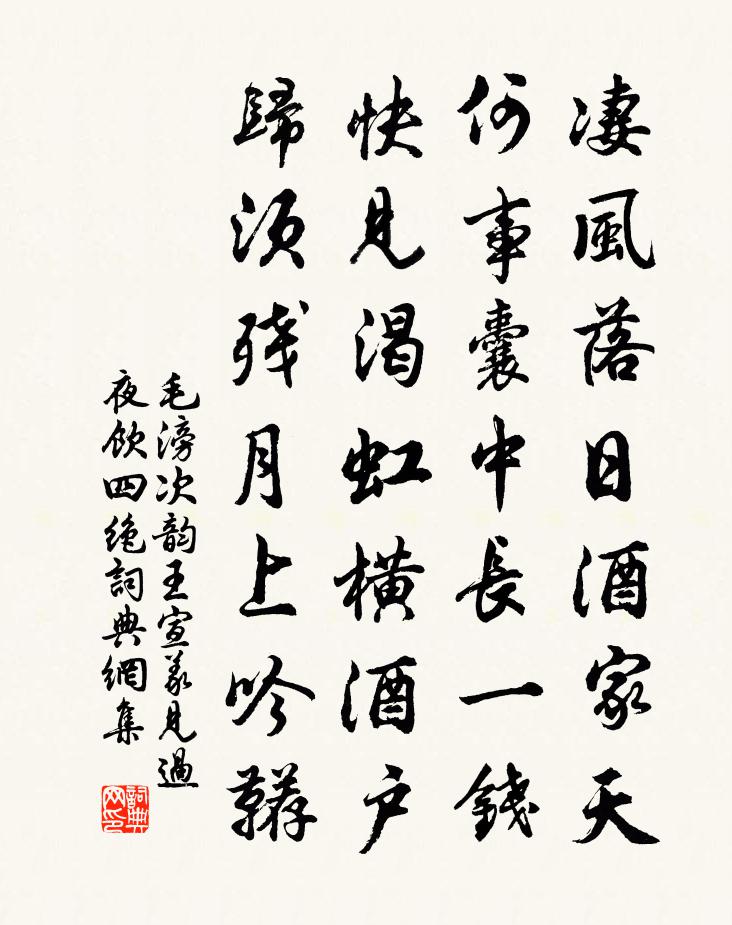 凄風落日酒家天
何事囊中長一錢
快見渴虹橫酒户
歸須殘月上吟韉
毛滂次韵王宣義見過
夜飲四絶詞典網集
詞典網印